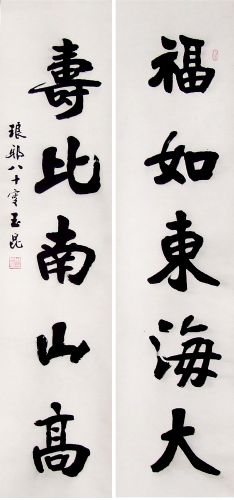 福如東海大
壽比南山高
琅邪八十叟玉昆